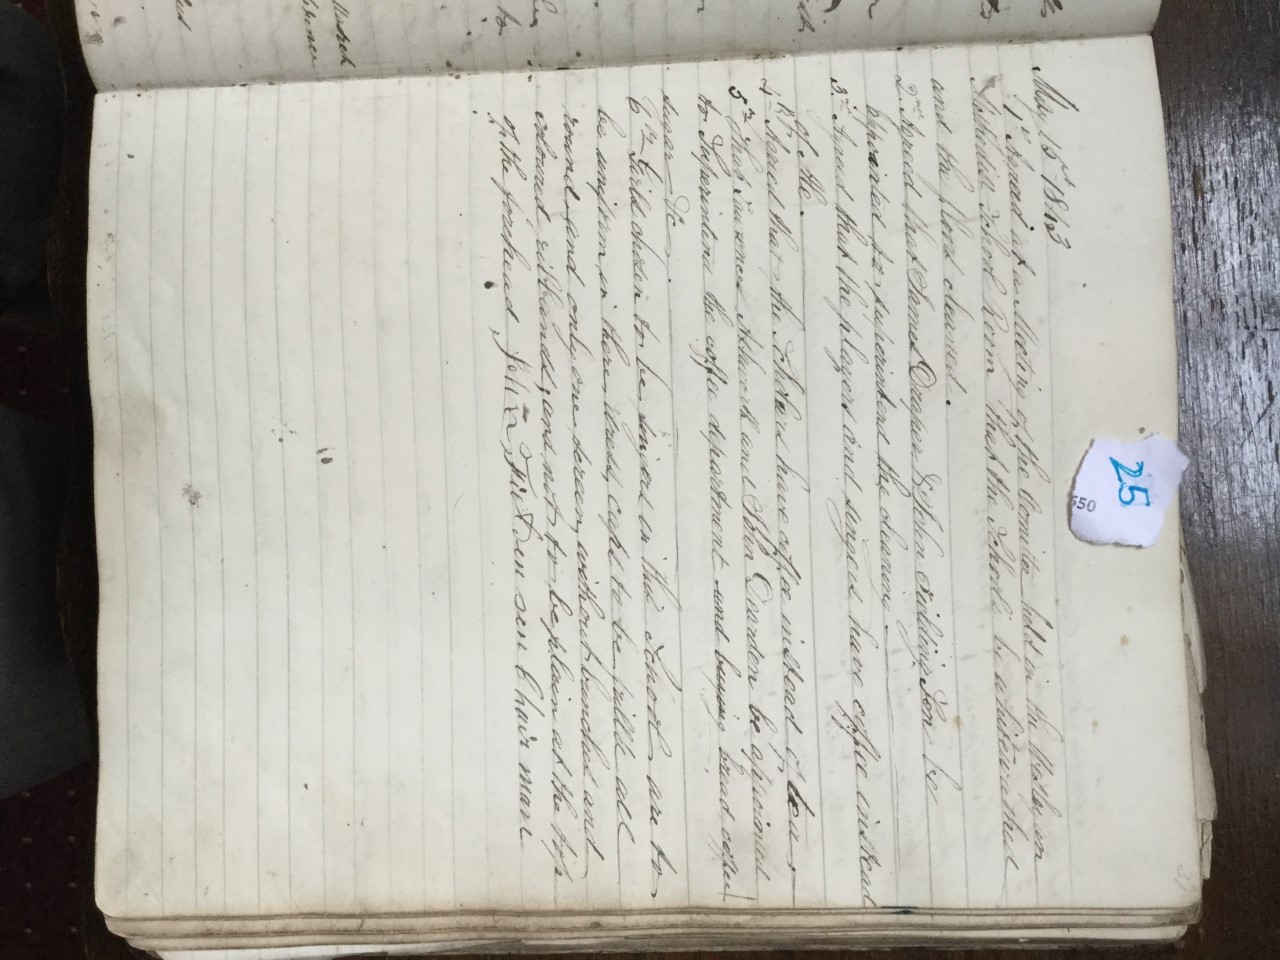 31
25
550
May 15th 1843
1st Agreed at a Meeting of the Comittee held in the Wesleyan
Methodist School Room that the Schools be whitewashed
and the floors cleaned.
2nd Agreed that James Draper & John Fielding Jon be
appointed to superintend the cleaning.
3rd Agreed that the players and singers have coffee instead
of Ale.
4th Agreed that the Scholars have coffee instead of tea.
5th That Lawrence Ashworth and John Dearden be appointed
to Superintend the coffee department and buying bread, coffee
sugar &c
6th Girls chosen to be singers in this School are to
be uniform in there dress, caps to be frill'd all
round, and only one screen, without bunches and
coloured ribbands; and not to be plain at the top
of the forehead John Fielden sen Chair man